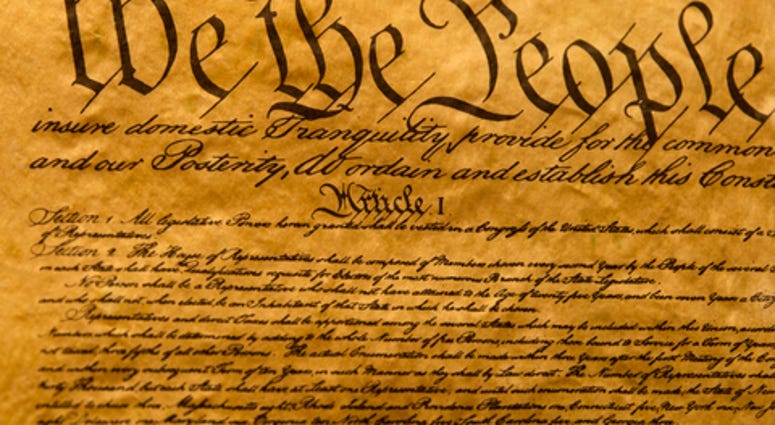 We the People
insure domestic Tranquility, provide for the common
and our Posterity, do ordain and establish this Const
Article I
Section 1 All legislative Powers herein granted shall be vested in a Congress of the United States, which shall consist of a
of Representatives.
Section 2 The House of Representatives shall be composed of Members chosen every second Year by the People of the several
in each State shall have Qualifications requisite for Electors of the most numerous Branch of the State Legislature.
No Person shall be a Representative who shall not have attained to the Age of twenty five Years, and been seven Years a Citiz
and who shall not, when elected, be an Inhabitant of that State in which he shall be chosen.
Representatives and direct Taxes shall be apportioned among the several States which may be included within this Union, accord
Numbers, which shall be determined by adding to the whole Number of free Persons, including those bound to Service for a Term of Years
not taxed, three fifths of all other Persons. The actual Enumeration shall be made within three Years after the first Meeting of the Co
and within every subsequent Term of ten Years, in such Manner as they shall by Law direct. The Number of Representatives shall
thirty Thousand, but each State shall have at Least one Representative; and until such enumeration shall be made, the State of New
entitled to chuse three, Massachusetts eight, Rhode Island and Providence Plantations one, Connecticut five, New York six, New
eight, Delaware one, Maryland six, Virginia ten, North Carolina five, South Carolina five, and Georgia three.